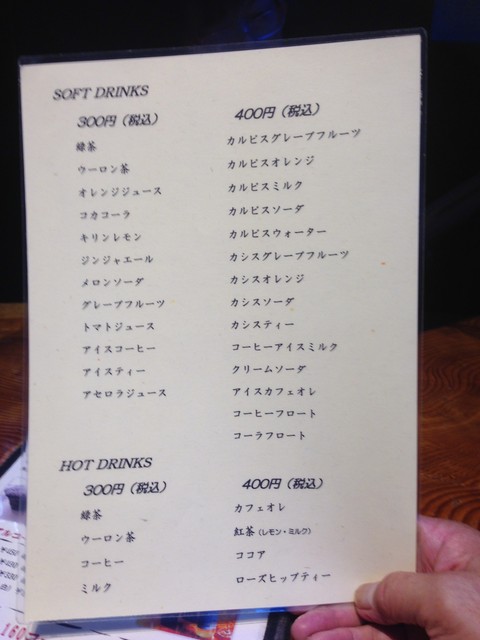 SOFT DRINKS
300円（税込）
緑茶
ウーロン茶
オレンジジュース
コカコーラ
キリンレモン
ジンジャエール
メロンソーダ
グレープフルーツ
トマトジュース
アイスコーヒー
アイスティー
アセロラジュース
400円（税込）
カルピスグレープフルーツ
カルピスオレンジ
カルピスミルク
カルピスソーダ
カルピスウォーター
カシスグレープフルーツ
カシスオレンジ
カシスソーダ
カシスティー
コーヒーアイスミルク
クリームソーダ
アイスカフェオレ
コーヒーフロート
コーラフロート
HOT DRINKS
300円（税込）
緑茶
ウーロン茶
コーヒー
ミルク
400円（税込）
カフェオレ
紅茶（レモン・ミルク）
ココア
ローズヒップティー